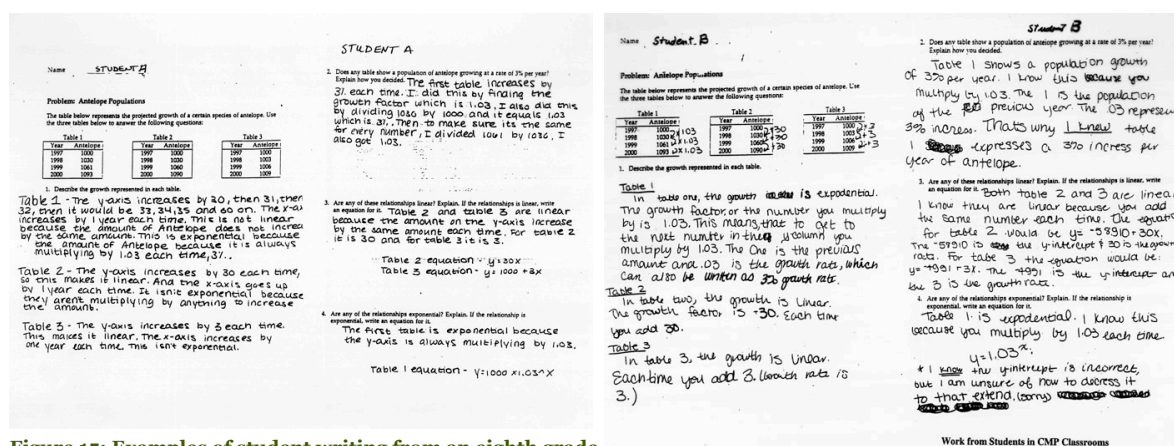 STUDENT A
Name STUDENT A
Problem: Antelope Populations
The table below represents the projected growth of a certain species of antelope. Use
the three tables below to answer the following questions:
Table 1 Table 2 Table 3
Year Antelope Year Antelope Year Antelope
1997 1000 1997 1000 1997 1000
1998 1030 1998 1030 1998 1003
1999 1061 1999 1060 1999 1006
2000 1093 2000 1090 2000 1009
1. Describe the growth represented in each table.
Table 1 - The y-axis increases by 30, then 31, then
32, then it would be 33, 34, 35 and so on. The x-ax
increases by 1 year each time. This is not linear
because the amount of Antelope does not increa
by the same amount. This is exponential because
the amount of Antelope because it is always
multiplying by 1.03 each time, 3%.
Table 2 - The y-axis increases by 30 each time,
so this makes it linear. And the x-axis goes up
by 1 year each time. It isn't exponential because
they arent multiplying by anything to increase
the amount.
Table 3 - The y-axis increases by 3 each time.
This makes it linear. The x-axis increases by
one year each time. This isn't exponential.
2. Does any table show a population of antelope growing at a rate of 3% per year?
Explain how you decided. The first table increases by
3% each time. I did this by finding the
growth factor which is 1.03, I also did this
by dividing 1030 by 1000, and it equals 1.03
which is 3%. Then to make sure its the same
for every number, I divided 1061 by 1030, I
also got 1.03.
3. Are any of these relationships linear? Explain. If the relationship is linear, write
an equation for it. Table 2 and table 3 are linear
because the amount on the y-axis increase
by the same amount each time. For table 2
it is 30 and for table 3 it is 3.
Table 2 equation - y=30x
Table 3 equation - y= 1000 +3x
4. Are any of these relationships exponential? Explain. If the relationship is
exponential, write an equation for it.
The first table is exponential because
the y-axis is always multiplying by 1.03.
Table 1 equation - y=1000 x1.03^x
Name Student B
Problem: Antelope Populations
The table below represents the projected growth of a certain species of antelope. Use
the three tables below to answer the following questions:
Table 1 Table 2 Table 3
Year Antelope Year Antelope Year Antelope
1997 1000 x1.03 1997 1000 +30 1997 1000 +3
1998 1030 x1.03 1998 1030 +30 1998 1003 +3
1999 1061 x1.03 1999 1060 +30 1999 1006 +3
2000 1093 2000 1090 2000 1009
1. Describe the growth represented in each table.
Table 1
In table one, the growth is expodential.
The growth factor, or the number you multiply
by is 1.03. This means, that to get to
the next number in the y column you
multiply by 1.03. The One is the previous
amount and .03 is the growth rate, which
can also be written as 3% growth rate.
Table 2
In table two, the growth is linear.
The growth factor is +30. Each time
you add 30.
Table 3
In table 3, the growth is linear.
Each time you add 3. (Growth rate is
3.)
Student B
2. Does any table show a population of antelope growing at a rate of 3% per year?
Explain how you decided.
Table 1 shows a population growth
of 3% per year. I know this because you
multiply by 1.03. The 1 is the population
of the previous year The .03 represen
3% incress. Thats why I knew table
1 expresses a 3% incress per
year of antelope.
3. Are any of these relationships linear? Explain. If the relationship is linear, write
an equation for it. Both table 2 and 3 are linea
I know they are linear because you add
the same number each time. The equati
for table 2 would be y= -58910+30x.
The -58910 is the y-intercept & 30 is the grow
rate. For table 3 the equation would be:
y= -4991+3x. The -4991 is the y-intercept an
the 3 is the growth rate.
4. Are any of these relationships exponential? Explain. If the relationship is
exponential, write an equation for it.
Table 1 is expodential. I know this
because you multiply by 1.03 each time.
y=1.03^x
* I know the y-intercept is incorrect,
but I am unsure of how to decress it
to that extend. (sorry)
Work from Students in CMP Classrooms